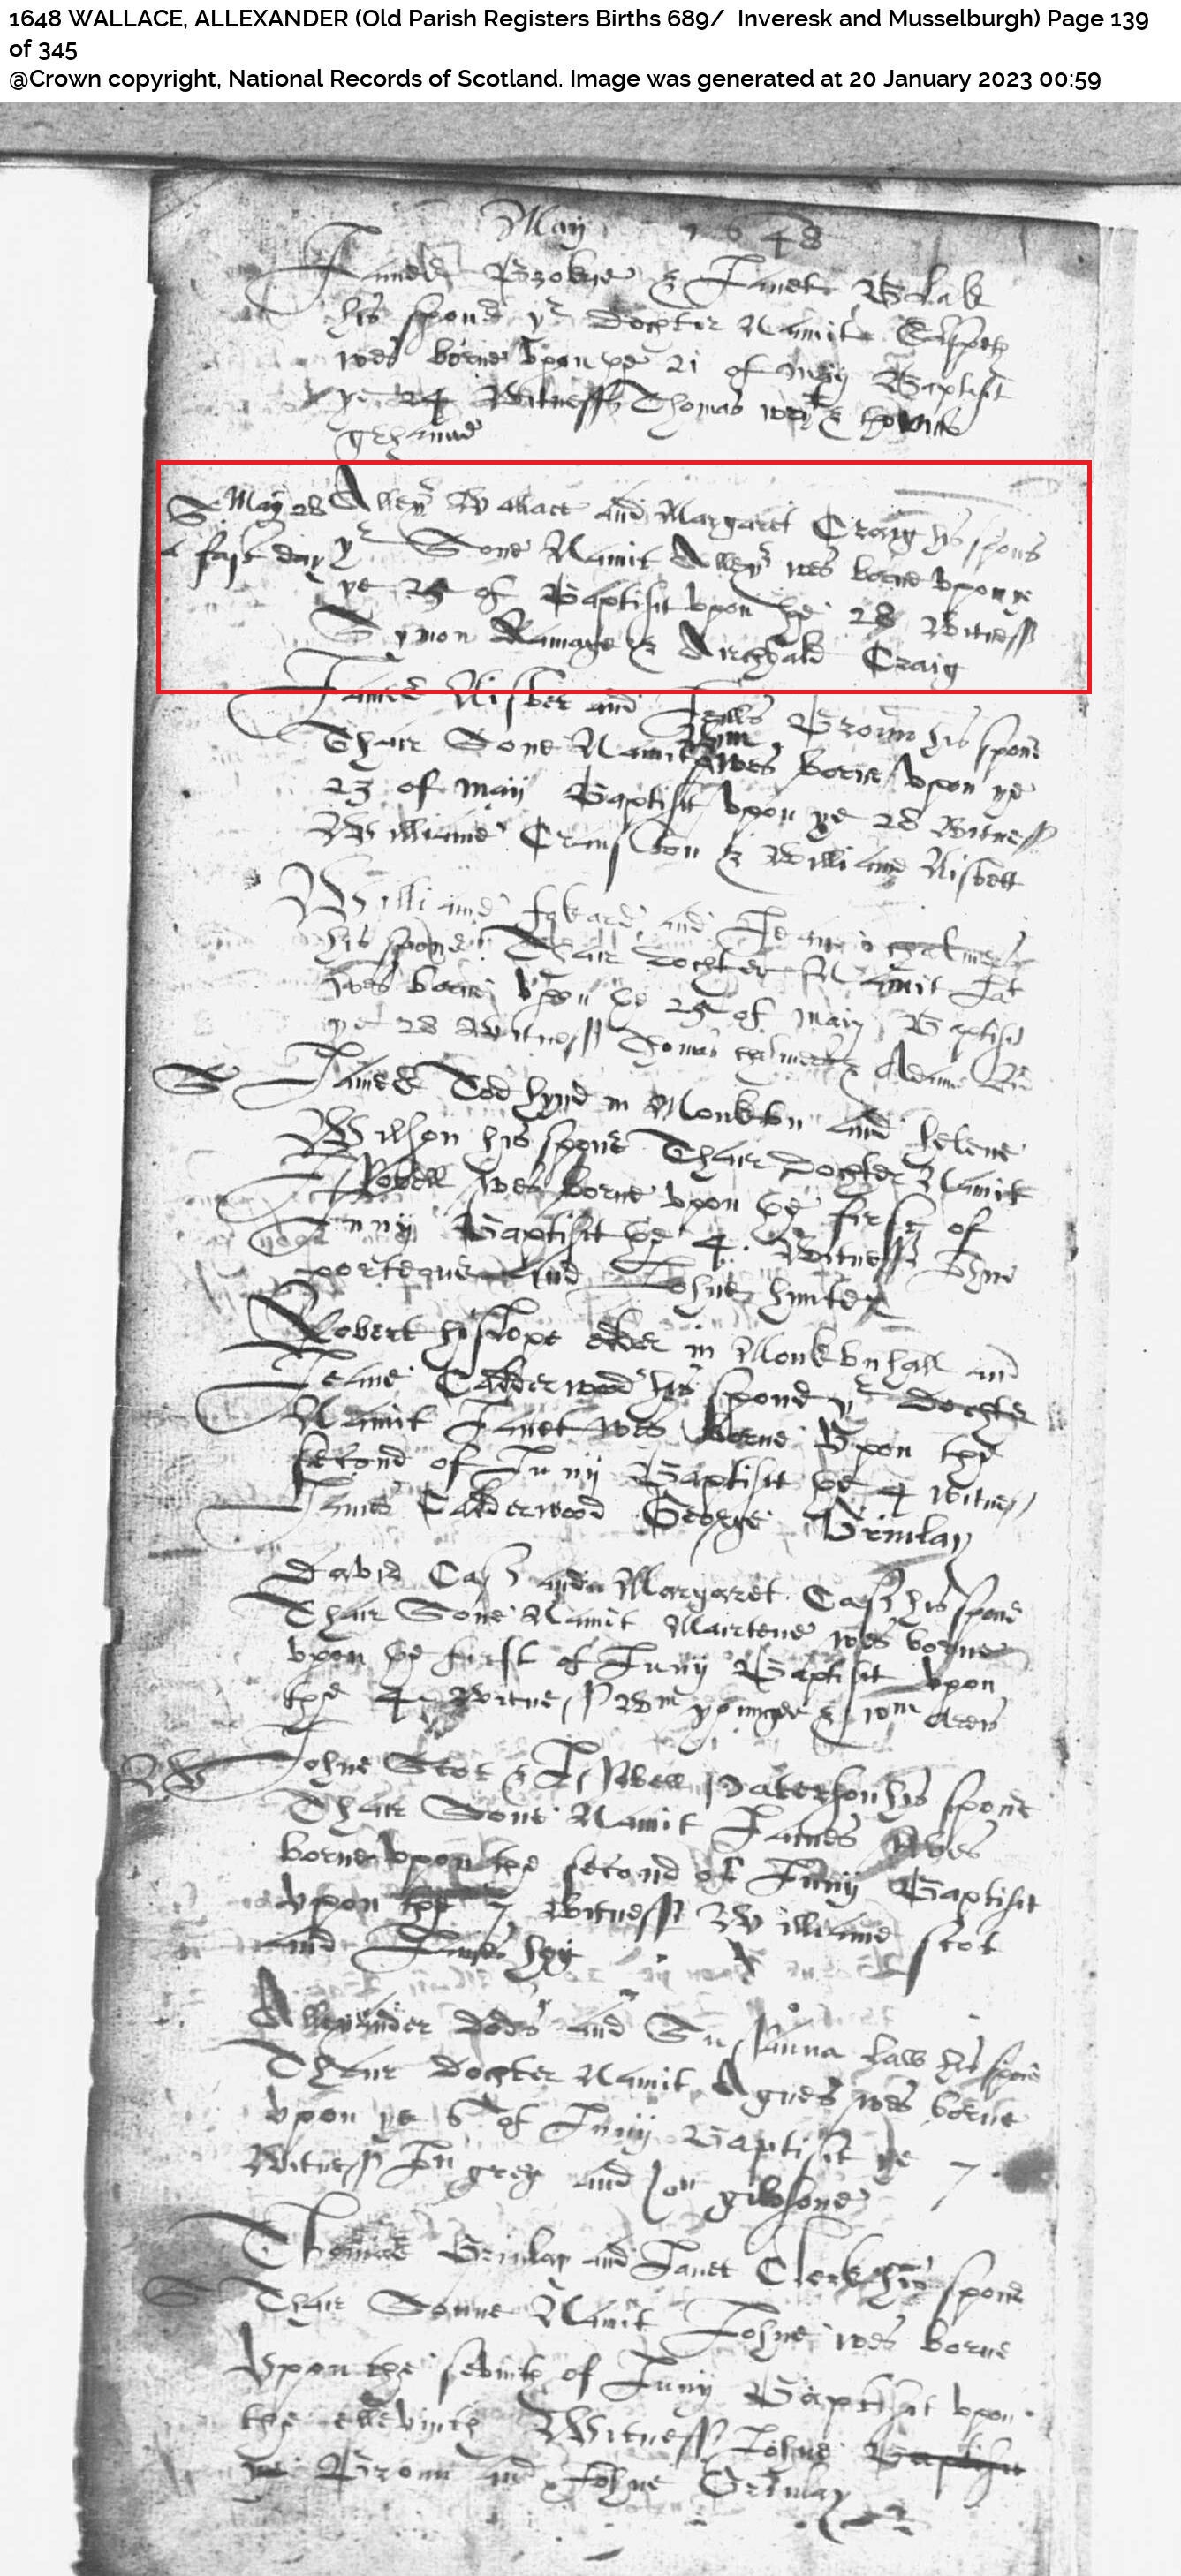 1648 WALLACE, ALLEXANDER (Old Parish Registers Births 689/ Inveresk and Musselburgh) Page 139
of 345
@Crown copyright, National Records of Scotland. Image was generated at 20 January 2023 00:59
May 1648
Broune & Janet Blak
his spous yr dochter Namit Elspeth
wes borne vpon ye 21 of May Baptist
ye 24 Witness Thomas &
May 28 Allexr Wallace and Margaret Craig his spous
a fast day yr Sone Namit Allexr wes borne vpon
ye 25 of Baptisit vpon ye 28 Witness
Symon Ramage & Archbald Craig
James Nisbet and Broun his spous
Thair Sone Namit Wm wes borne vpon ye
23 of maij Baptisit vpon ye 28 Witness
Williame Cranston & Williame Nisbett
Williame and chalmers
his spous Thair dochter Namit
wes borne vpon ye 25 of maij Baptisit
ye 28 Witness Thomas chalmers & Adame
S James Tod hynd in Monkton and helene
Wilson his spous Thair Dochter Namit
Issobell wes borne vpon ye first of
Junij Baptisit ye 4 Witness
porteous and Johne hunter
Robert hislope elder in Monktonhall and
Jeane Calderwood his spous yr dochter
Namit Janet wes borne Vpon the
second of Junij Baptisit ye 4 Witness
James Calderwood George Brimlay
David Cass and Margaret Cass his spous
Thair Sone Namit Mairtene wes borne
vpon ye first of Junij Baptisit vpon
the 4 Witness Wm younger & wm
Johne Scot & Issobell Patersone his spous
Thair Sone Namit James Wes
borne vpon the second of Junij Baptisit
vpon the 7 Witness Williame scot
and James hog
Allexander dods and Susanna Law his spous
Thair Dochter Namit Agnes wes borne
vpon ye 6 of Junij Baptisit ye 7
Witness Jn greg and Jon gibsone
Thomas Brimlay and Janet Clerk his spous
S Thair Sonne Namit Johne wes borne
Vpon the sevinth of Junij Baptisit vpon
the ellevinth Witness Johne Baptisit
Broun and Johne Brimlay